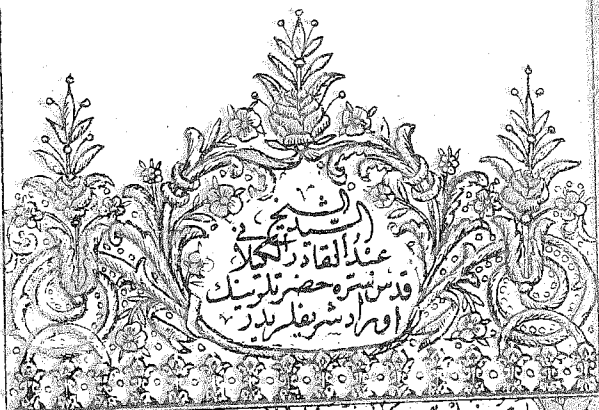 الشيخ
السيد
عبد القادر الكيلانى
قدس سره حضرتلرينك
اوراد شريفلريدر